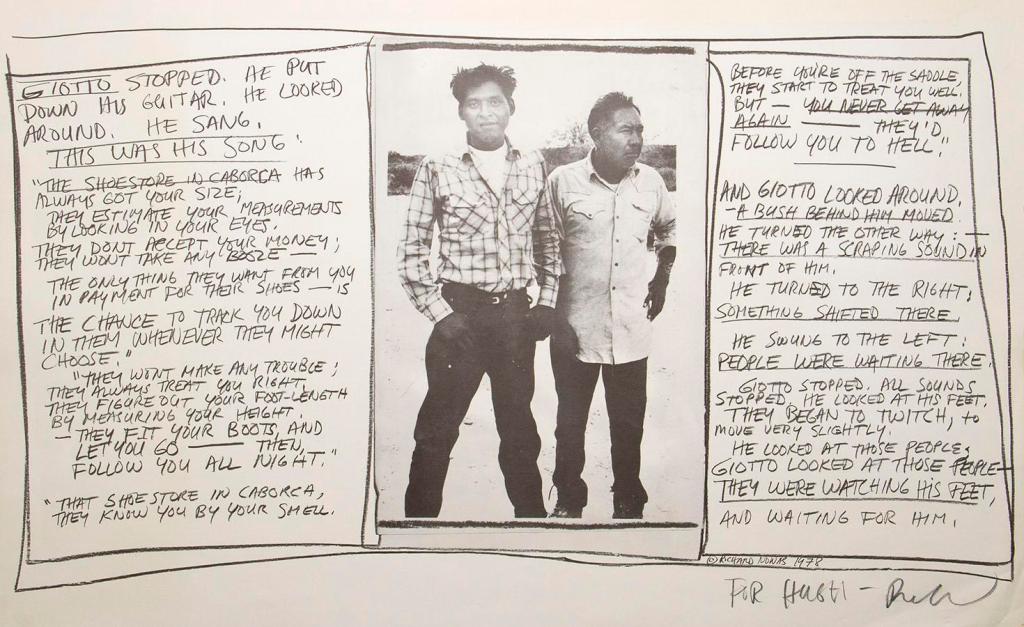 GIOTTO STOPPED. HE PUT
DOWN HIS GUITAR. HE LOOKED
AROUND. HE SANG.
THIS WAS HIS SONG:
"THE SHOESTORE IN CABORCA HAS
ALWAYS GOT YOUR SIZE;
THEY ESTIMATE YOUR MEASUREMENTS
BY LOOKING IN YOUR EYES.
THEY DONT ACCEPT YOUR MONEY;
THEY WONT TAKE ANY BOOZE —
THE ONLY THING THEY WANT FROM YOU
IN PAYMENT FOR THEIR SHOES — IS
THE CHANCE TO TRACK YOU DOWN
IN THEM WHENEVER THEY MIGHT
CHOOSE."
"THEY WONT MAKE ANY TROUBLE;
THEY ALWAYS TREAT YOU RIGHT.
THEY FIGURE OUT YOUR FOOT-LENGTH
BY MEASURING YOUR HEIGHT.
— THEY FIT YOUR BOOTS, AND
LET YOU GO — THEN,
FOLLOW YOU ALL NIGHT."
"THAT SHOESTORE IN CABORCA,
THEY KNOW YOU BY YOUR SMELL.
BEFORE YOU'RE OFF THE SADDLE,
THEY START TO TREAT YOU WELL.
BUT — YOU NEVER GET AWAY
AGAIN — THEY'D
FOLLOW YOU TO HELL."
AND GIOTTO LOOKED AROUND.
— A BUSH BEHIND HIM MOVED.
HE TURNED THE OTHER WAY: —
THERE WAS A SCRAPING SOUND IN
FRONT OF HIM.
HE TURNED TO THE RIGHT;
SOMETHING SHIFTED THERE.
HE SWUNG TO THE LEFT:
PEOPLE WERE WAITING THERE.
GIOTTO STOPPED. ALL SOUNDS
STOPPED. HE LOOKED AT HIS FEET.
THEY BEGAN TO TWITCH, to
MOVE VERY SLIGHTLY.
HE LOOKED AT THOSE PEOPLE;
GIOTTO LOOKED AT THOSE PEOPLE —
THEY WERE WATCHING HIS FEET,
AND WAITING FOR HIM.
(C) RICHARD NONAS 1978
FOR